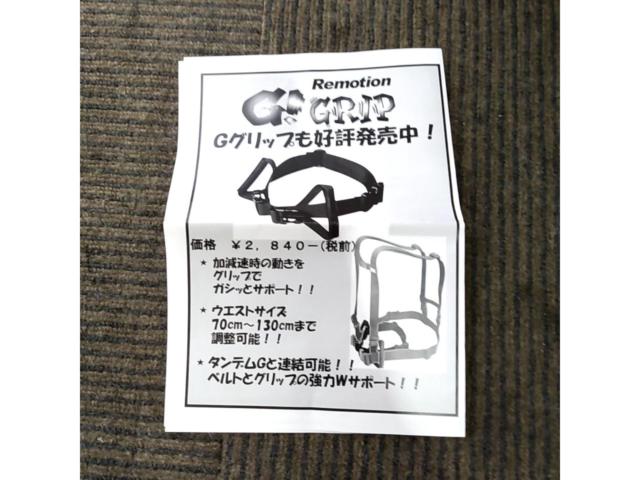 Remotion
G's GRIP
Gグリップも好評発売中！
価格 ￥2，840ー(税前)
★ 加減速時の動きを
グリップで
ガシッとサポート！！
★ ウエストサイズ
70cm～130cmまで
調整可能！！
★ タンデムGと連結可能！！
ベルトとグリップの強力Wサポート！！